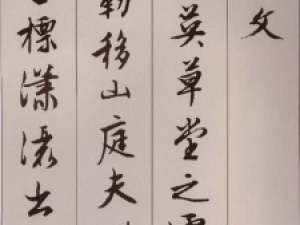 文
英草堂之靈
勒移山庭夫
標瀟灑出